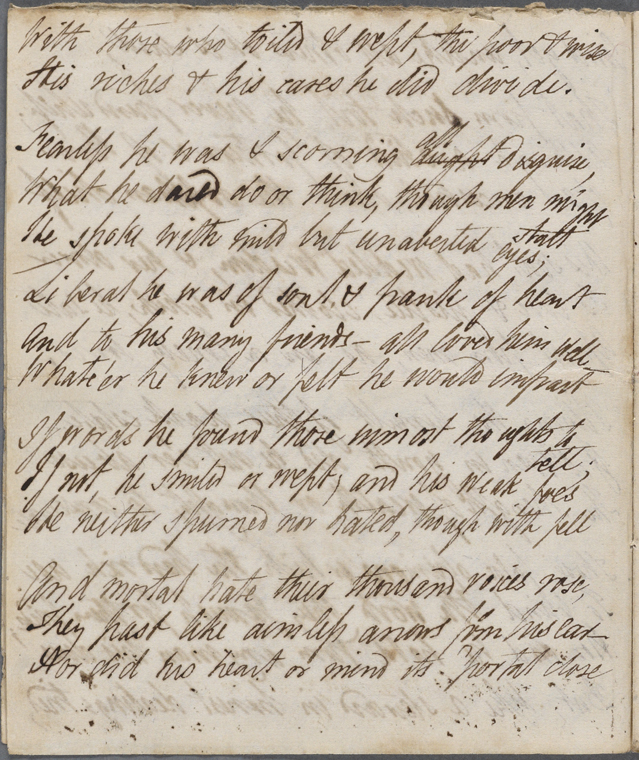 With those who toiled & wept, the poor & wise
His riches & his cares he did divide.
Fearless he was & scorning all disguise,
What he dared do or think, though men might start
He spoke with mild but unaverted eyes;
Liberal he was of soul & frank of heart
And to his many friends – all loved him well –
Whate'er he knew or felt he would impart
If words he found those inmost thoughts to tell;
If not, he smiled or wept; and his weak foes
He neither spurned nor hated, though with fell
And mortal hate their thousand voices rose,
They past like aimless arrows from his ear
Nor did his heart or mind its portal close